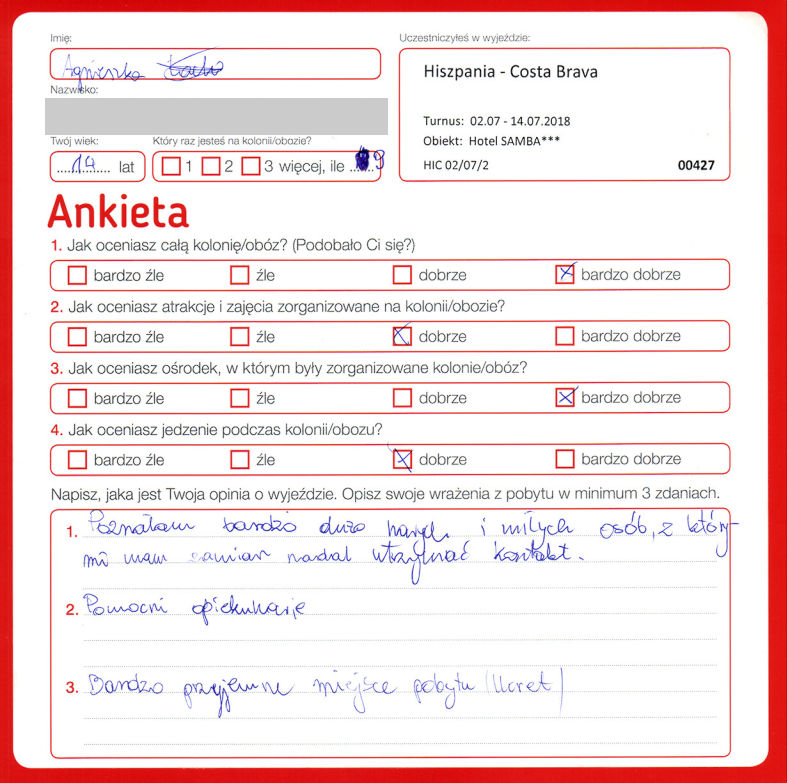 Imię:
Agnieszka
Nazwisko:
Twój wiek:
14 lat
Który raz jesteś na kolonii/obozie?
1 2 3 więcej, ile 9
Uczestniczyłeś w wyjeździe:
Hiszpania - Costa Brava
Turnus: 02.07 - 14.07.2018
Obiekt: Hotel SAMBA***
HIC 02/07/2 00427
Ankieta
1. Jak oceniasz całą kolonię/obóz? (Podobało Ci się?)
bardzo źle źle dobrze bardzo dobrze
2. Jak oceniasz atrakcje i zajęcia zorganizowane na kolonii/obozie?
bardzo źle źle dobrze bardzo dobrze
3. Jak oceniasz ośrodek, w którym były zorganizowane kolonie/obóz?
bardzo źle źle dobrze bardzo dobrze
4. Jak oceniasz jedzenie podczas kolonii/obozu?
bardzo źle źle dobrze bardzo dobrze
Napisz, jaka jest Twoja opinia o wyjeździe. Opisz swoje wrażenia z pobytu w minimum 3 zdaniach.
1. Poznałam bardzo dużo nowych i miłych osób, z który-
mi mam zamiar nadal utrzymać kontakt.
2. Pomocni opiekunowie
3. Bardzo przyjemne miejsce pobytu (Lloret)